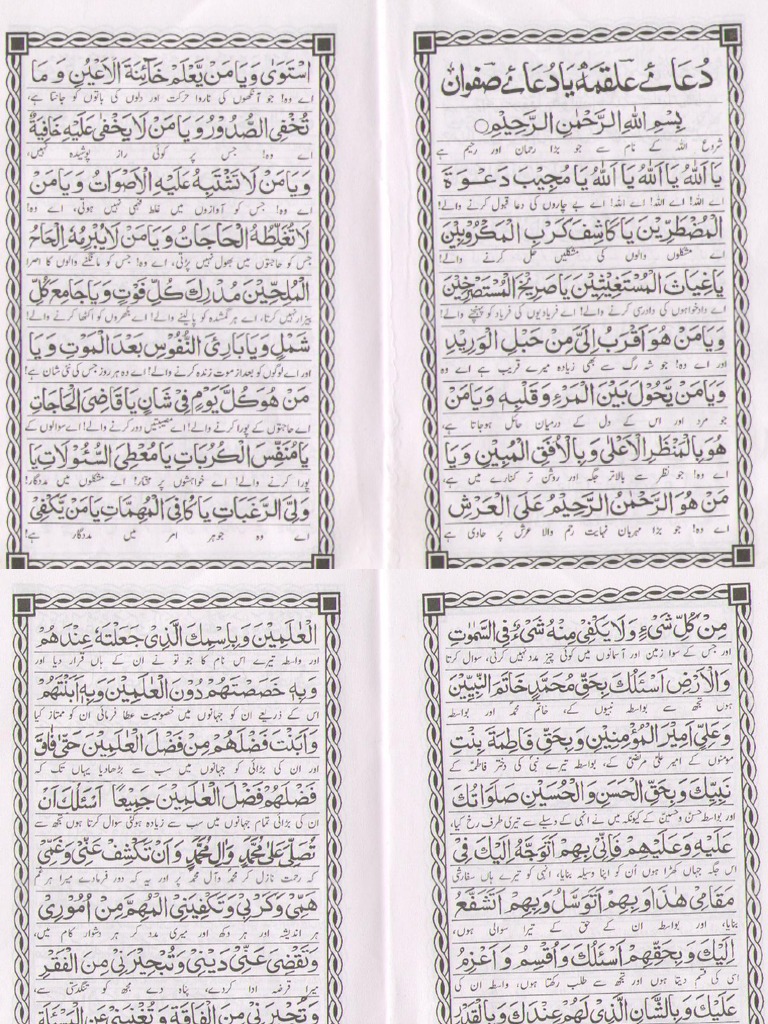 دُعائے علقمہؓ یا دُعائے صفوان
بِسْمِ اللهِ الرَّحْمٰنِ الرَّحِيْمِ
شروع اللہ کے نام سے جو بڑا رحمان اور رحیم ہے
يَا اَللهُ يَا اَللهُ يَا اَللهُ يَا مُجِيْبَ دَعْوَةِ
اے اللہ! اے اللہ! اے اللہ! اے بے چاروں کی دعا قبول کرنے والے!
الْمُضْطَرِّيْنَ يَا كَاشِفَ كَرْبِ الْمَكْرُوْبِيْنَ
اے مشکلوں والوں کی مشکلیں حل کرنے والے!
يَا غِيَاثَ الْمُسْتَغِيْثِيْنَ يَا صَرِيْخَ الْمُسْتَصْرِخِيْنَ
اے دادخواہوں کی دادرسی کرنے والے! اے فریادیوں کی فریاد کو پہنچنے والے!
وَيَا مَنْ هُوَ اَقْرَبُ اِلَيَّ مِنْ حَبْلِ الْوَرِيْدِ
اور اے وہ! جو شہ رگ سے بھی زیادہ میرے قریب ہے اے وہ
وَيَا مَنْ يَّحُوْلُ بَيْنَ الْمَرْءِ وَقَلْبِهٖ وَيَا مَنْ
جو مرد اور اس کے دل کے درمیان حائل ہوجاتا ہے،
هُوَ بِالْمَنْظَرِ الْاَعْلٰى وَبِالْاُفُقِ الْمُبِيْنِ وَيَا
اے وہ! جو نظر سے بالاتر جگہ اور روشن تر کنارے میں ہے،
مَنْ هُوَ الرَّحْمٰنُ الرَّحِيْمُ عَلَى الْعَرْشِ
اے وہ! جو بڑا مہربان نہایت رحم والا عرش پر حاوی ہے
اسْتَوٰى وَيَا مَنْ يَّعْلَمُ خَآئِنَةَ الْاَعْيُنِ وَمَا
اے وہ! جو آنکھوں کی ناروا حرکت اور دلوں کی باتوں کو جانتا ہے،
تُخْفِى الصُّدُوْرُ وَيَا مَنْ لَّا يَخْفٰى عَلَيْهِ خَافِيَةٌ
اے وہ! جس پر کوئی راز پوشیدہ نہیں،
وَيَا مَنْ لَّا تَشْتَبِهُ عَلَيْهِ الْاَصْوَاتُ وَيَا مَنْ
اے وہ! جس کو آوازوں میں غلط فہمی نہیں ہوتی، اے وہ!
لَّا تُغَلِّطُهُ الْحَاجَاتُ وَيَا مَنْ لَّا يُبْرِمُهٗ اِلْحَاحُ
جس کو حاجتوں میں بھول نہیں پڑتی، اے وہ! جس کو مانگنے والوں کا اصرار
الْمُلِحِّيْنَ يَا مُدْرِكَ كُلِّ فَوْتٍ وَيَا جَامِعَ كُلِّ
بیزار نہیں کرتا، اے ہر گمشدہ کو پالینے والے! اے بکھروں کو اکٹھا کرنے والے!
شَمْلٍ وَيَا بَارِئَ النُّفُوْسِ بَعْدَ الْمَوْتِ وَيَا
اور اے لوگوں کو بعد از موت زندہ کرنے والے! اے وہ ہر روز جس کی نئی شان ہے!
مَنْ هُوَ كُلَّ يَوْمٍ فِيْ شَانٍ يَا قَاضِيَ الْحَاجَاتِ
اے حاجتوں کے پورا کرنے والے! اے مصیبتیں دور کرنے والے! اے سوالوں کے
يَا مُنَفِّسَ الْكُرُبَاتِ يَا مُعْطِيَ السُّئُوْلَاتِ يَا
پورا کرنے والے! اے خواہشوں پر مختار! اے مشکلوں میں مددگار!
وَلِيَّ الرَّغَبَاتِ يَا كَافِيَ الْمُهِمَّاتِ يَا مَنْ يَّكْفِيْ
اے وہ جو ہر امر میں مددگار ہے!
مِنْ كُلِّ شَيْءٍ وَلَا يَكْفِيْ مِنْهُ شَيْءٌ فِي السَّمٰوٰتِ
اور جس کے سوا زمین اور آسمانوں میں کوئی چیز مدد نہیں کرتی، سوال کرتا
وَالْاَرْضِ اَسْئَلُكَ بِحَقِّ مُحَمَّدٍ خَاتَمِ النَّبِيِّيْنَ
ہوں تجھ سے بواسطہ نبیوں کے، خاتم محمد اور بواسطہ
وَعَلِيٍّ اَمِيْرِ الْمُؤْمِنِيْنَ وَبِحَقِّ فَاطِمَةَ بِنْتِ
مومنوں کے امیر علی مرتضیٰ کے، بواسطہ تیرے نبی کی دختر فاطمہؑ کے
نَبِيِّكَ وَبِحَقِّ الْحَسَنِ وَالْحُسَيْنِ صَلَوَاتُكَ
اور بواسطہ حسن و حسینؑ کے کیونکہ میں نے انہی کے وسیلے سے تیری طرف رخ کیا،
عَلَيْهِ وَعَلَيْهِمْ فَاِنِّيْ بِهِمْ اَتَوَجَّهُ اِلَيْكَ فِيْ
اس جگہ جہاں کھڑا ہوں اُن کو اپنا وسیلہ بنایا، انہی کو تیرے ہاں سفارشی
مَقَامِيْ هٰذَا وَبِهِمْ اَتَوَسَّلُ وَبِهِمْ اَتَشَفَّعُ
بنایا، اور بواسطہ ان کے حق کے تیرا سوالی ہوں،
اِلَيْكَ وَبِحَقِّهِمْ اَسْئَلُكَ وَاُقْسِمُ وَاَعْزِمُ
اسی کی قسم دیتا ہوں اور تجھ سے طلب رکھتا ہوں، بواسطہ ان کی
عَلَيْكَ وَبِالشَّانِ الَّذِيْ لَهُمْ عِنْدَكَ وَبِالْقَدْرِ
الْعٰلَمِيْنَ وَبِاسْمِكَ الَّذِيْ جَعَلْتَهٗ عِنْدَهُمْ
اور واسطہ تیرے اس نام کا جو تو نے ان کے ہاں قرار دیا اور
وَبِهٖ خَصَصْتَهُمْ دُوْنَ الْعٰلَمِيْنَ وَبِهٖ اَبَنْتَهُمْ
اس کے ذریعے ان کو جہانوں میں خصوصیت عطا فرمائی ان کو ممتاز کیا
وَاَبَنْتَ فَضْلَهُمْ مِنْ فَضْلِ الْعٰلَمِيْنَ حَتّٰى فَاقَ
اور ان کی بڑائی کو جہانوں میں سب سے بڑھا دیا یہاں تک کہ
فَضْلُهُمْ فَضْلَ الْعٰلَمِيْنَ جَمِيْعًا اَسْئَلُكَ اَنْ
ان کی بڑائی تمام جہانوں میں سب سے زیادہ ہوگئی سوال کرتا ہوں تجھ سے
تُصَلِّيَ عَلٰى مُحَمَّدٍ وَّاٰلِ مُحَمَّدٍ وَاَنْ تَكْشِفَ عَنِّيْ غَمِّيْ
کہ رحمت نازل کر محمدؐ و آل محمدؐ پر اور یہ کہ دور فرمادے میرا ہر غم
هَمِّيْ وَكَرْبِيْ وَتَكْفِيَنِي الْمُهِمَّ مِنْ اُمُوْرِيْ
ہر اندیشہ اور ہر دکھ اور میری مدد کر ہر دشوار کام میں،
وَتَقْضِيَ عَنِّيْ دَيْنِيْ وَتُجِيْرَنِيْ مِنَ الْفَقْرِ
میرا قرضہ ادا کردے، پناہ دے مجھ کو تنگدستی سے،
وَتُجِيْرَنِيْ مِنَ الْفَاقَةِ وَتُغْنِيَنِيْ عَنِ الْمَسْئَلَةِ